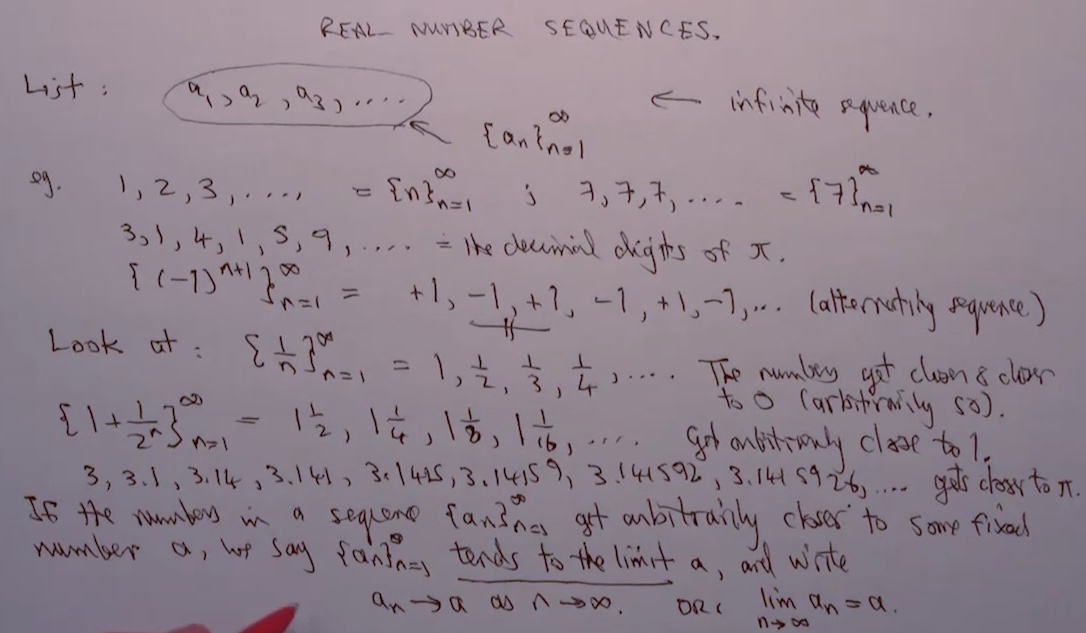 REAL NUMBER SEQUENCES.
List: a₁, a₂, a₃, .... ← infinite sequence.
{aₙ}ₙ₌₁^∞
eg. 1, 2, 3, ...., = {n}ₙ₌₁^∞ ; 7, 7, 7, .... = {7}ₙ₌₁^∞
3, 1, 4, 1, 5, 9, .... = the decimal digits of π.
{(-1)ⁿ⁺¹}ₙ₌₁^∞ = +1, -1, +1, -1, +1, -1, ... (alternating sequence)
Look at: {1/n}ₙ₌₁^∞ = 1, 1/2, 1/3, 1/4, .... The numbers get closer & closer
to 0 (arbitrarily so).
{1+1/2ⁿ}ₙ₌₁^∞ = 1 1/2, 1 1/4, 1 1/8, 1 1/16, .... Get arbitrarily close to 1.
3, 3.1, 3.14, 3.141, 3.1415, 3.14159, 3.141592, 3.1415926, .... gets closer to π.
If the numbers in a sequence {aₙ}ₙ₌₁^∞ get arbitrarily closer to some fixed
number a, we say {aₙ}ₙ₌₁^∞ tends to the limit a, and write
aₙ → a as n → ∞. OR: lim n→∞ aₙ = a.